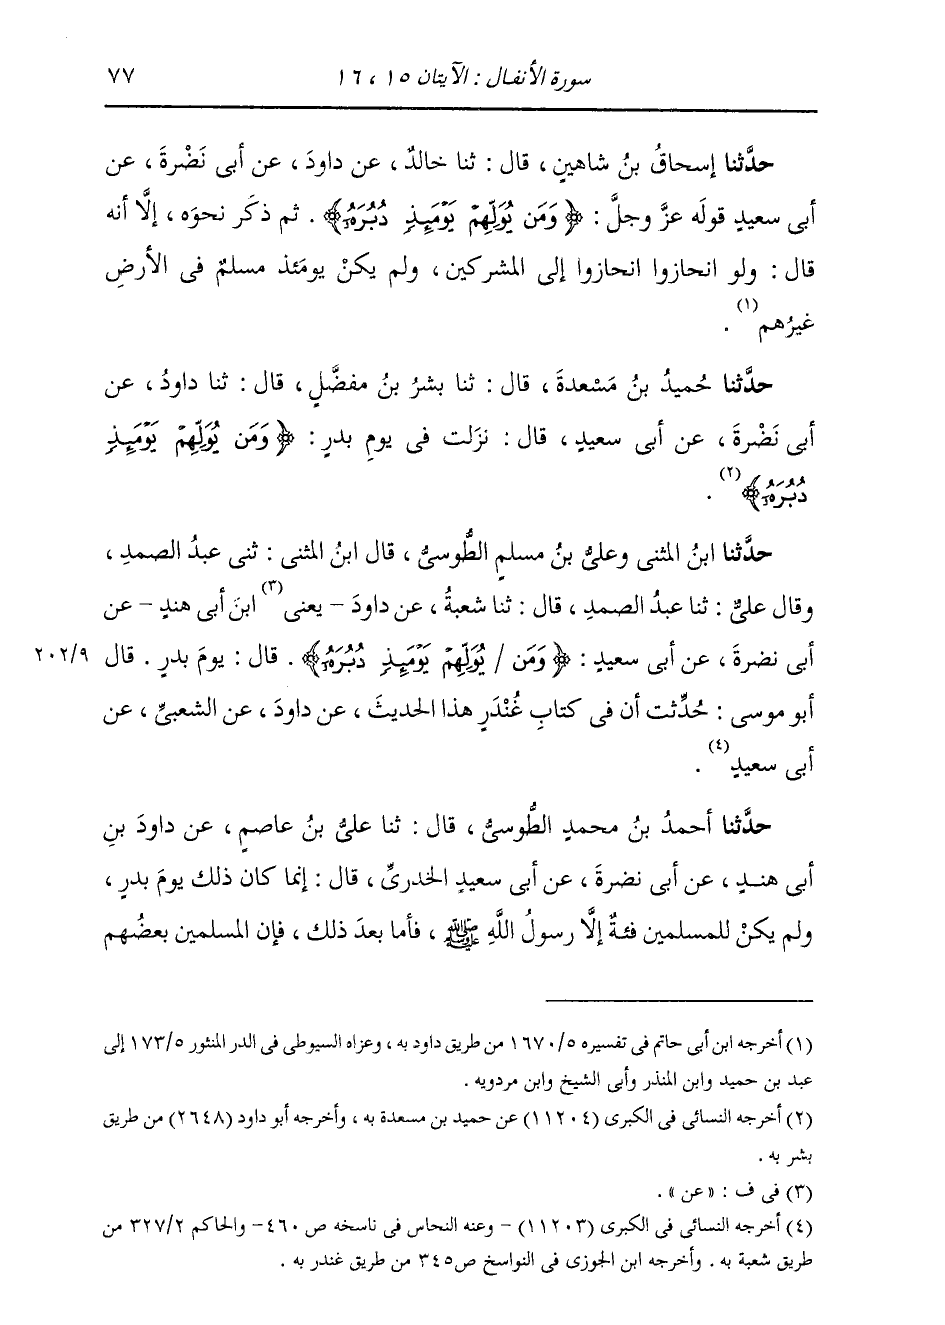 سورة الأنفال : الآيتان ١٥ ، ١٦
٧٧
حدَّثنا إسحاقُ بنُ شاهينٍ ، قال : ثنا خالدٌ ، عن داودَ ، عن أبى نَضْرةَ ، عن
أبى سعيدٍ قولَه عزَّ وجلَّ : ﴿ وَمَن يُوَلِّهِمْ يَوْمَئِذٍ دُبُرَهُۥ ﴾ . ثم ذكَر نحوَه ، إلَّا أنه
قال : ولو انحازوا انحازوا إلى المشركين ، ولم يكنْ يومَئذ مسلمٌ فى الأرضِ
غيرُهم (١) .
حدَّثنا حُميدُ بنُ مَسْعدةَ ، قال : ثنا بشرُ بنُ مفضَّلٍ ، قال : ثنا داودُ ، عن
أبى نَضْرةَ ، عن أبى سعيدٍ ، قال : نزَلت فى يومِ بدرٍ : ﴿ وَمَن يُوَلِّهِمْ يَوْمَئِذٍ
دُبُرَهُۥ ﴾ (٢) .
حدَّثنا ابنُ المثنى وعلىُّ بنُ مسلمٍ الطُّوسىُّ ، قال ابنُ المثنى : ثنى عبدُ الصمدِ ،
وقال علىٌّ : ثنا عبدُ الصمدِ ، قال : ثنا شعبةُ ، عن داودَ - يعنى (٣) ابنَ أبى هندٍ - عن
أبى نضرةَ ، عن أبى سعيدٍ : ﴿ وَمَن / يُوَلِّهِمْ يَوْمَئِذٍ دُبُرَهُۥ ﴾ . قال : يومَ بدرٍ . قال ٢٠٢/٩
أبو موسى : حُدِّثت أن فى كتابِ غُنْدَرٍ هذا الحديثَ ، عن داودَ ، عن الشعبىِّ ، عن
أبى سعيدٍ (٤) .
حدَّثنا أحمدُ بنُ محمدٍ الطُّوسىُّ ، قال : ثنا علىُّ بنُ عاصمٍ ، عن داودَ بنِ
أبى هنـدٍ ، عن أبى نضرةَ ، عن أبى سعيدٍ الخدرىِّ ، قال : إنما كان ذلك يومَ بدرٍ ،
ولم يكنْ للمسلمين فئةٌ إلَّا رسولُ اللَّهِ ﷺ ، فأما بعدَ ذلك ، فإن المسلمين بعضُهم
(١) أخرجه ابن أبى حاتم فى تفسيره ١٦٧٠/٥ من طريق داود به ، وعزاه السيوطى فى الدر المنثور ١٧٣/٥ إلى
عبد بن حميد وابن المنذر وأبى الشيخ وابن مردويه .
(٢) أخرجه النسائى فى الكبرى (١١٢٠٤) عن حميد بن مسعدة به ، وأخرجه أبو داود (٢٦٤٨) من طريق
بشر به .
(٣) فى ف : « عن » .
(٤) أخرجه النسائى فى الكبرى (١١٢٠٣) - وعنه النحاس فى ناسخه ص ٤٦٠- والحاكم ٣٢٧/٢ من
طريق شعبة به . وأخرجه ابن الجوزى فى النواسخ ص٣٤٥ من طريق غندر به .